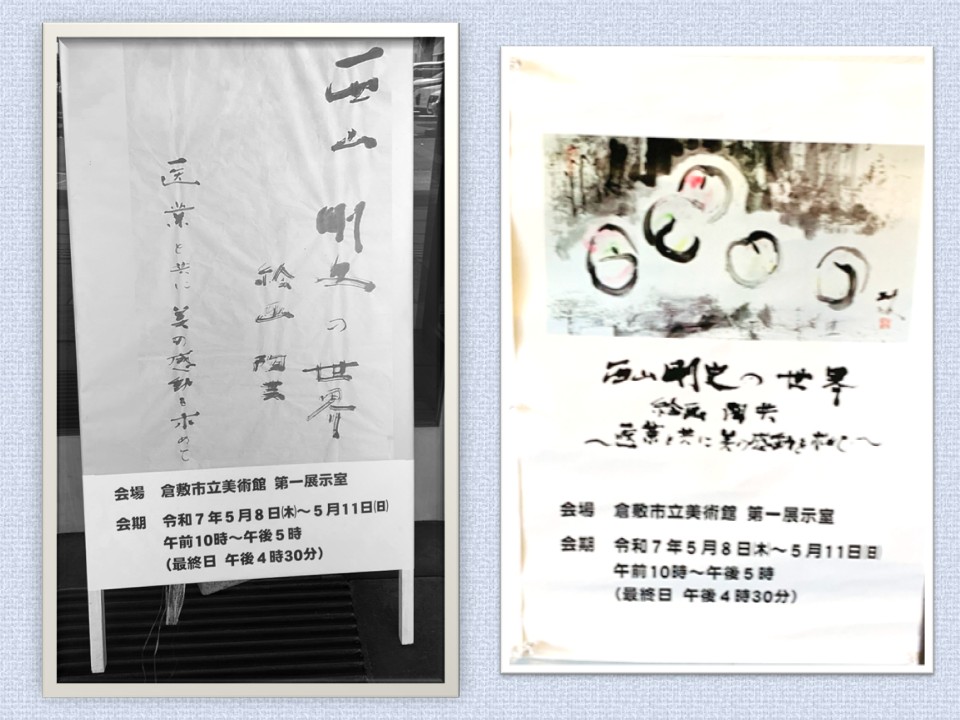 西山 剛史の世界
絵画 陶芸
医業と共に美の感動を求めて
会場 倉敷市立美術館 第一展示室
会期 令和7年5月8日㈭～5月11日㈰
午前10時～午後5時
（最終日 午後4時30分）
西山剛史の世界
絵画 陶芸
～医業と共に美の感動を求めて～
会場 倉敷市立美術館 第一展示室
会期 令和7年5月8日㈭～5月11日㈰
午前10時～午後5時
（最終日 午後4時30分）